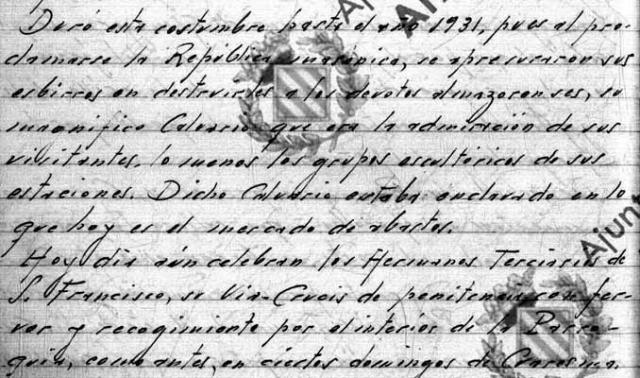 Duró esta costumbre hasta el año 1931, pues al pro-
clamarse la República masónica, se apresuraron sus
esbirros en destruirles a los devotos almazorenses, su
magnífico Calvario que era la admiración de sus
visitantes, lo menos los grupos escultóricos de sus
estaciones. Dicho Calvario estaba enclavado en lo
que hoy es el mercado de abastos.
Hoy dia aún celebran los Hermanos Terciarios de
S. Francisco, su Via-Crucis de penitencia con fer-
vor y recogimiento por el interior de la Parro-
quia, como antes, en ciertos domingos de Cuaresma.
Ajun